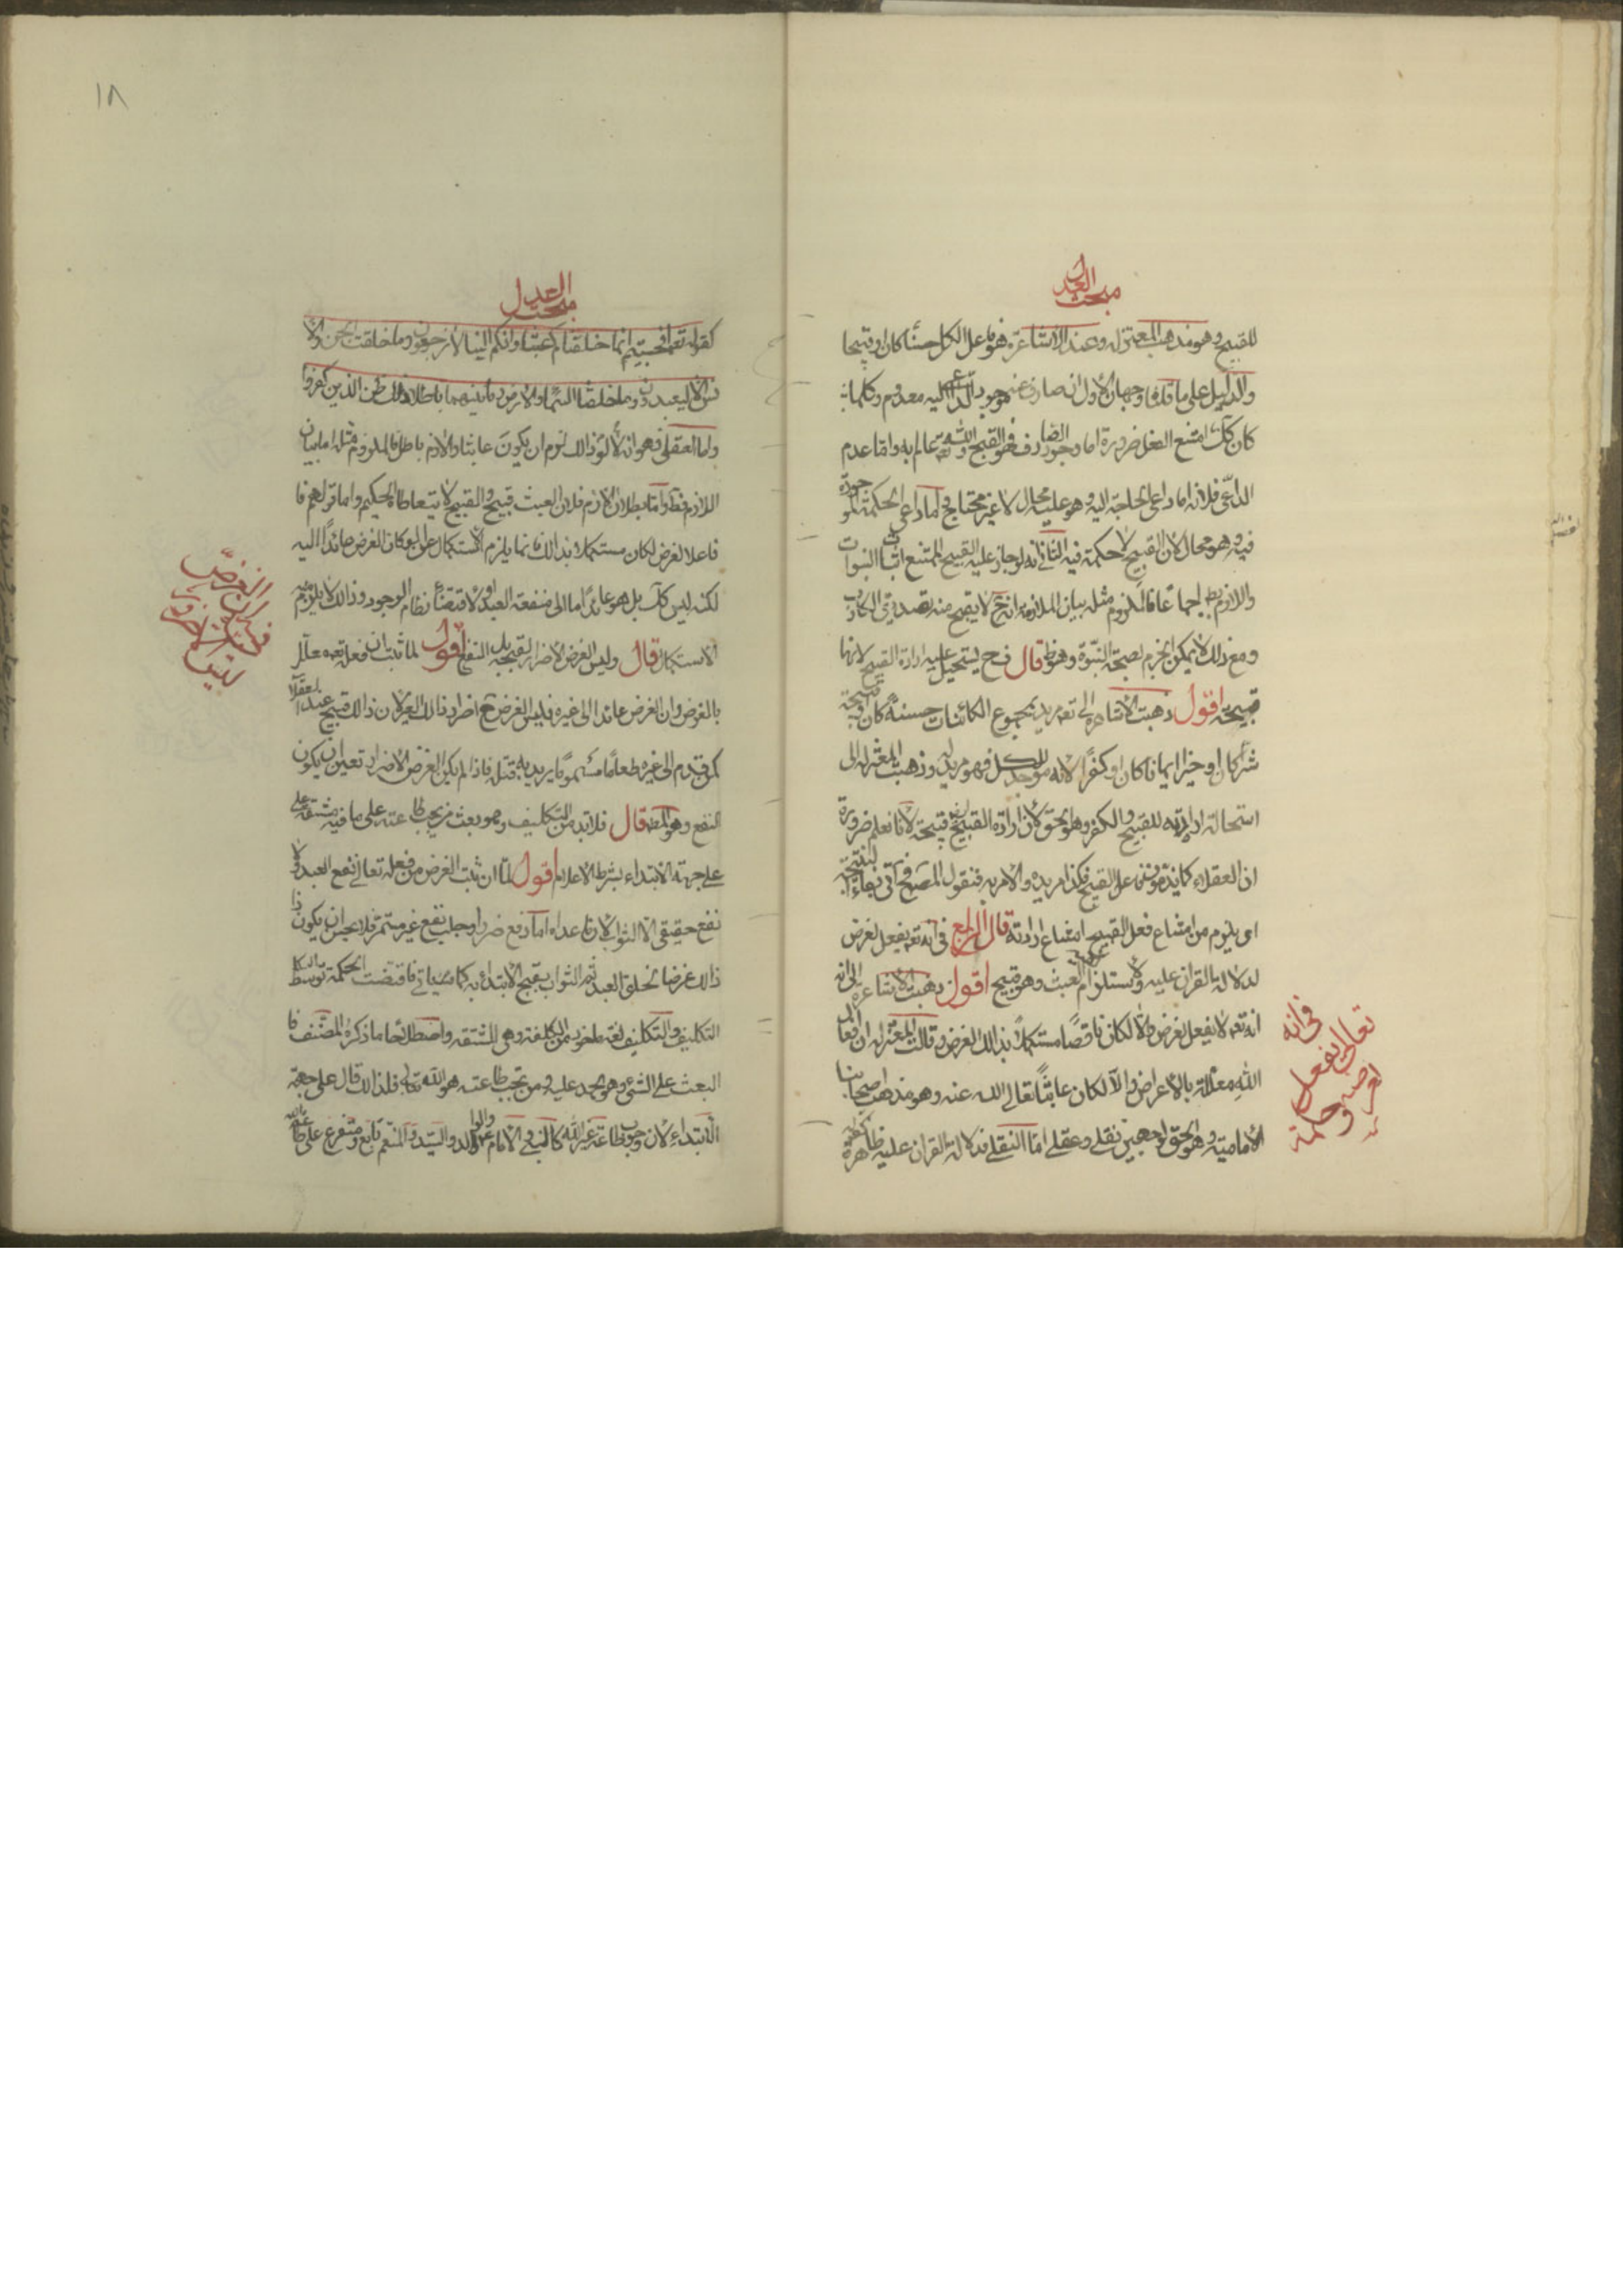 مبحث العدل
للقبيح وهو مذهب المعتزله وعند الاشاعرة هو فاعل الكل حسنا كان او قبيحا
والدليل على ما قلناه وجهان الاول ان الصارف عنه موجود والداعى اليه معدوم وكلما
كان كك امتنع الفعل ضرورة اما وجود الصارف فهو القبح والله تعه عالم به واما عدم
الداعى فلانه اما داعى الحاجة اليه وهو عليه محال لانه غير محتاج واما داعى الحكمة الموجودة
فيه وهو محال لان القبيح لا حكمة فيه الثانى انه لو جاز عليه القبيح لامتنع اثبات النبوات
واللازم بط اجماعا فالملزوم مثله بيان الملازمة انه ح لا يقبح منه تصديق الكاذب
ومع ذلك لا يمكن الجزم لصحة النبوة وهو ظ قال فح يستحيل عليه ارادة القبيح لانها
قبيحة اقول ذهبت الاشاعرة الى تعه مريد بجميع الكائنات حسنة كان او قبيحة
شرا كان او خيرا ايمانا كان او كفرا لانه موجد للكل فهو مريد له وذهبت المعتزله الى
استحالة ارادته للقبيح والكفر وهو الحق لان ارادة القبيح قبيحة لانا نعلم ضرورة
ان العقلاء كما يذمون فاعل القبيح فكذا مريده والامر به فقول المصنف فح اتى بفاء النتيجة
اى يلزم من امتناع فعل القبيح امتناع ارادته قال الرابع فى انه تعه يفعل لغرض
لدلالة القران عليه ولاستلزام نفيه العبث وهو قبيح اقول ذهبت الاشاعره الى انه
انه تعه لا يفعل لغرض والا لكان ناقصا مستكملا بذالك الغرض وقالت المعتزله ان افعال
الله معللة بالاغراض والا لكان عابثا تعالى الله عنه وهو مذهب اصحابنا
الامامية وهو الحق لوجهين نقلى وعقلى اما النقلى فدلالة القران عليه ظاهرة
فى انه
تعالى يفعل
لغرض
وحكمة
١٨
مبحث العدل
كقوله تعه افحسبتم انما خلقناكم عبثا وانكم الينا لا ترجعون وما خلقت الجن والا
نس الا ليعبدون وما خلقنا السماء والارض وما بينهما باطلا ذلك ظن الذين كفروا
واما العقلى فهو انه لولا ذالك لزم ان يكون عابثا واللازم باطل فالملزوم مثله اما بيان
اللازم فظ واما بطلان اللازم فلان العبث قبيح والقبيح لا يتعاطاه الحكيم واما قولهم
فاعلا لغرض لكان مستكملا بذالك فانما يلزم الاستكمال ان لو كان الغرض عائدا اليه
لكنه ليس كك بل هو عائد اما الى منفعة العبد او لاقتضاء نظام الوجود وذالك لا يلزم منه
الاستكمال قال وليس الغرض الاضرار لقبحه بل النفع اقول لما ثبت ان فعله تعه معلل
بالغرض وان الغرض عائد الى غيره فليس الغرض ح اضرار ذالك الغير لان ذالك قبيح عند العقلا
كمن قدم الى غيره طعاما مسموما يريد به قتله فاذا لم يكن الغرض الاضرار تعين ان يكون
النفع وهو المط قال فلا بد من التكليف وهو بعث من يجب طاعته على ما فيه مشقة
على جهة الابتداء بشرط الاعلام اقول لما ان ثبت الغرض من فعله تعالى نفع العبد ولا
نفع حقيقى الا الثواب لان ما عداه اما دفع ضرر او جلب نفع غير مستمر فلا يحسن ان يكون
ذالك غرضا لخلق العبد ثم الثواب يقبح الابتداء به كما سياتى فاقتضت الحكمة توسط
التكليف والتكليف لغة ماخوذ من الكلفة وهى المشقة واصطلاحا ما ذكره المصنف فا
البعث على الشىء وهو الحمل عليه ومن تجب طاعته هو الله تعالى فلذالك قال على جهة
الابتداء لان وجوب طاعة غير الله كالنبى والامام والوالد والسيد والمنعم تابع ومتفرع على طاعة الله
ليس الاضرار
الغرض